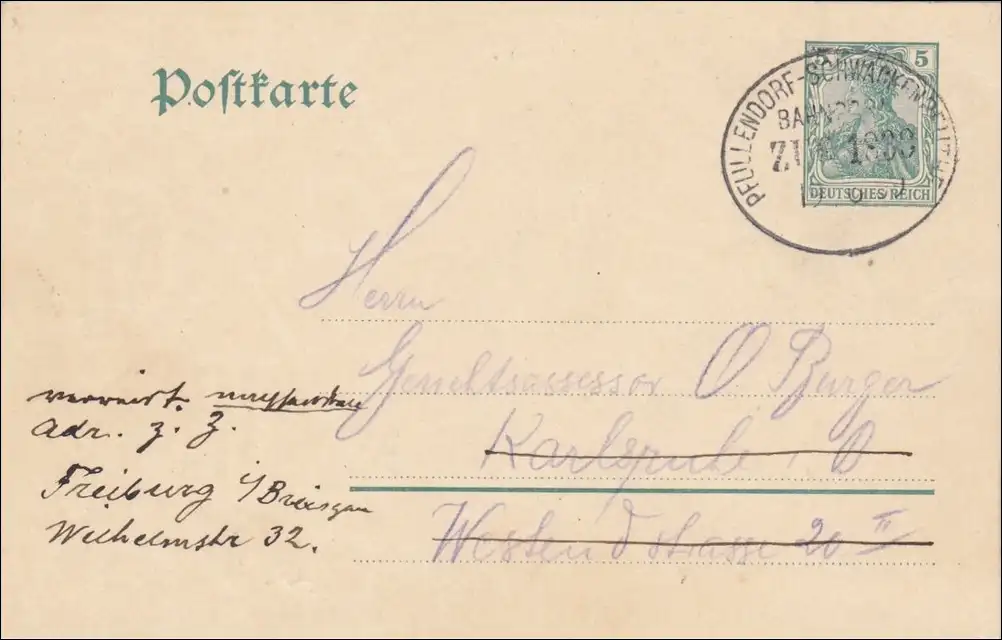 Postkarte
5
DEUTSCHES REICH
PFULLENDORF-SCHWACKENREUTE
BAHNPOST
ZUG 1888
Herrn
Gerichtsassessor O Burger
Karlsruhe i B
Westendstrasse 20 II
verreist.
Adr. z. Z.
Freiburg i/Breisgau
Wilhelmstr 32.